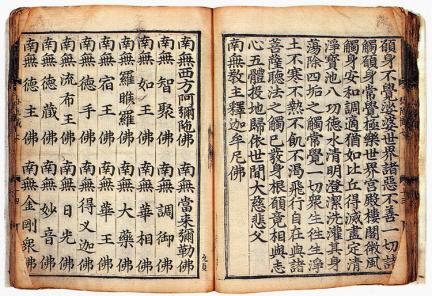 願身不覺娑婆世界諸惡不善一切諸
觸願身常覺極樂世界宮殿樓閣微風
觸身安和調適猶如比丘得滅盡定清
淨寶池八功德水清明澄潔洗濯其身
蕩除四垢之觸常覺一切眾生往生淨
土不寒不熱不飢不渴飛行自在與諸
菩薩聽法之觸已發身根願竟相與志
心五體投地歸依世間大慈悲父
南無敎主釋迦牟尼佛
南無西方阿彌陁佛 南無當來彌勒佛
南無智聚佛 南無調御佛
南無如王佛 南無華相佛
南無羅睺羅佛 南無大藥佛
南無宿王佛 南無華王佛
南無德手佛 南無得叉迦佛
南無流布王佛 南無日光佛
南無德藏佛 南無妙音佛
南無德主佛 南無金剛衆佛